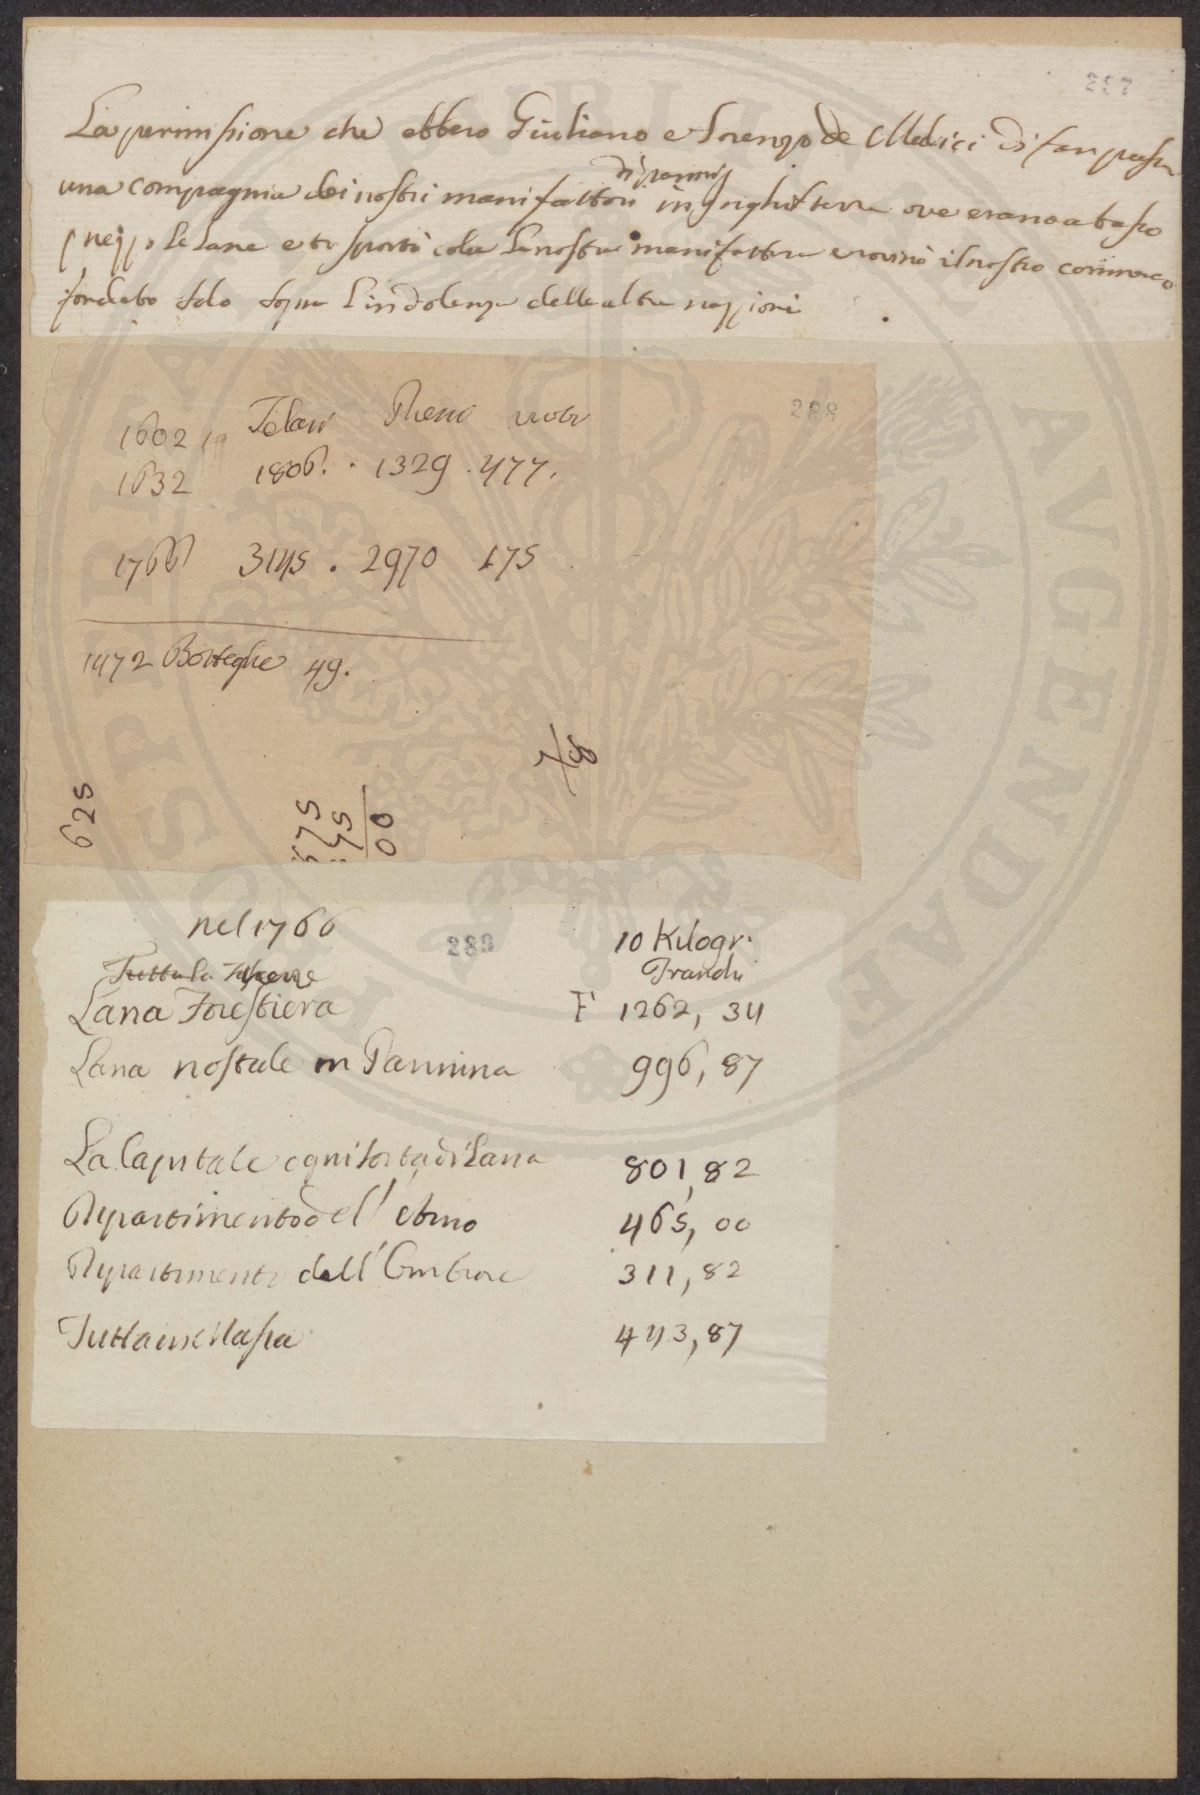 287
La permissione che ebbero Giuliano e Lorenzo de Medici di far passar
di panni
una compagnia dei nostri manifattori in Inghilterra ove erano a basso
prezzo le Lane e trsportò colà la nostra manifattura e rovinò il nostro commerco
fondato solo sopra l'indolenza delle altre nazzioni
288
Telari Pieni vuoti
1602
1632 1806. . 1329 . 477.
1766 3145 . 2970 175
1472 Botteghe 49.
78
625
575
00
nel 1766
289
10 Kilogr.
Franchi
Tutta la
Lana Forestiera F 1262, 34
Lana nostale in Pannina 996, 87
La Capitale ogni sorta di Lana 801, 82
Dipartimento dell' Arno 465, 00
Dipartimento dell' Ombrone 311, 82
Tutta in Massa 443, 87